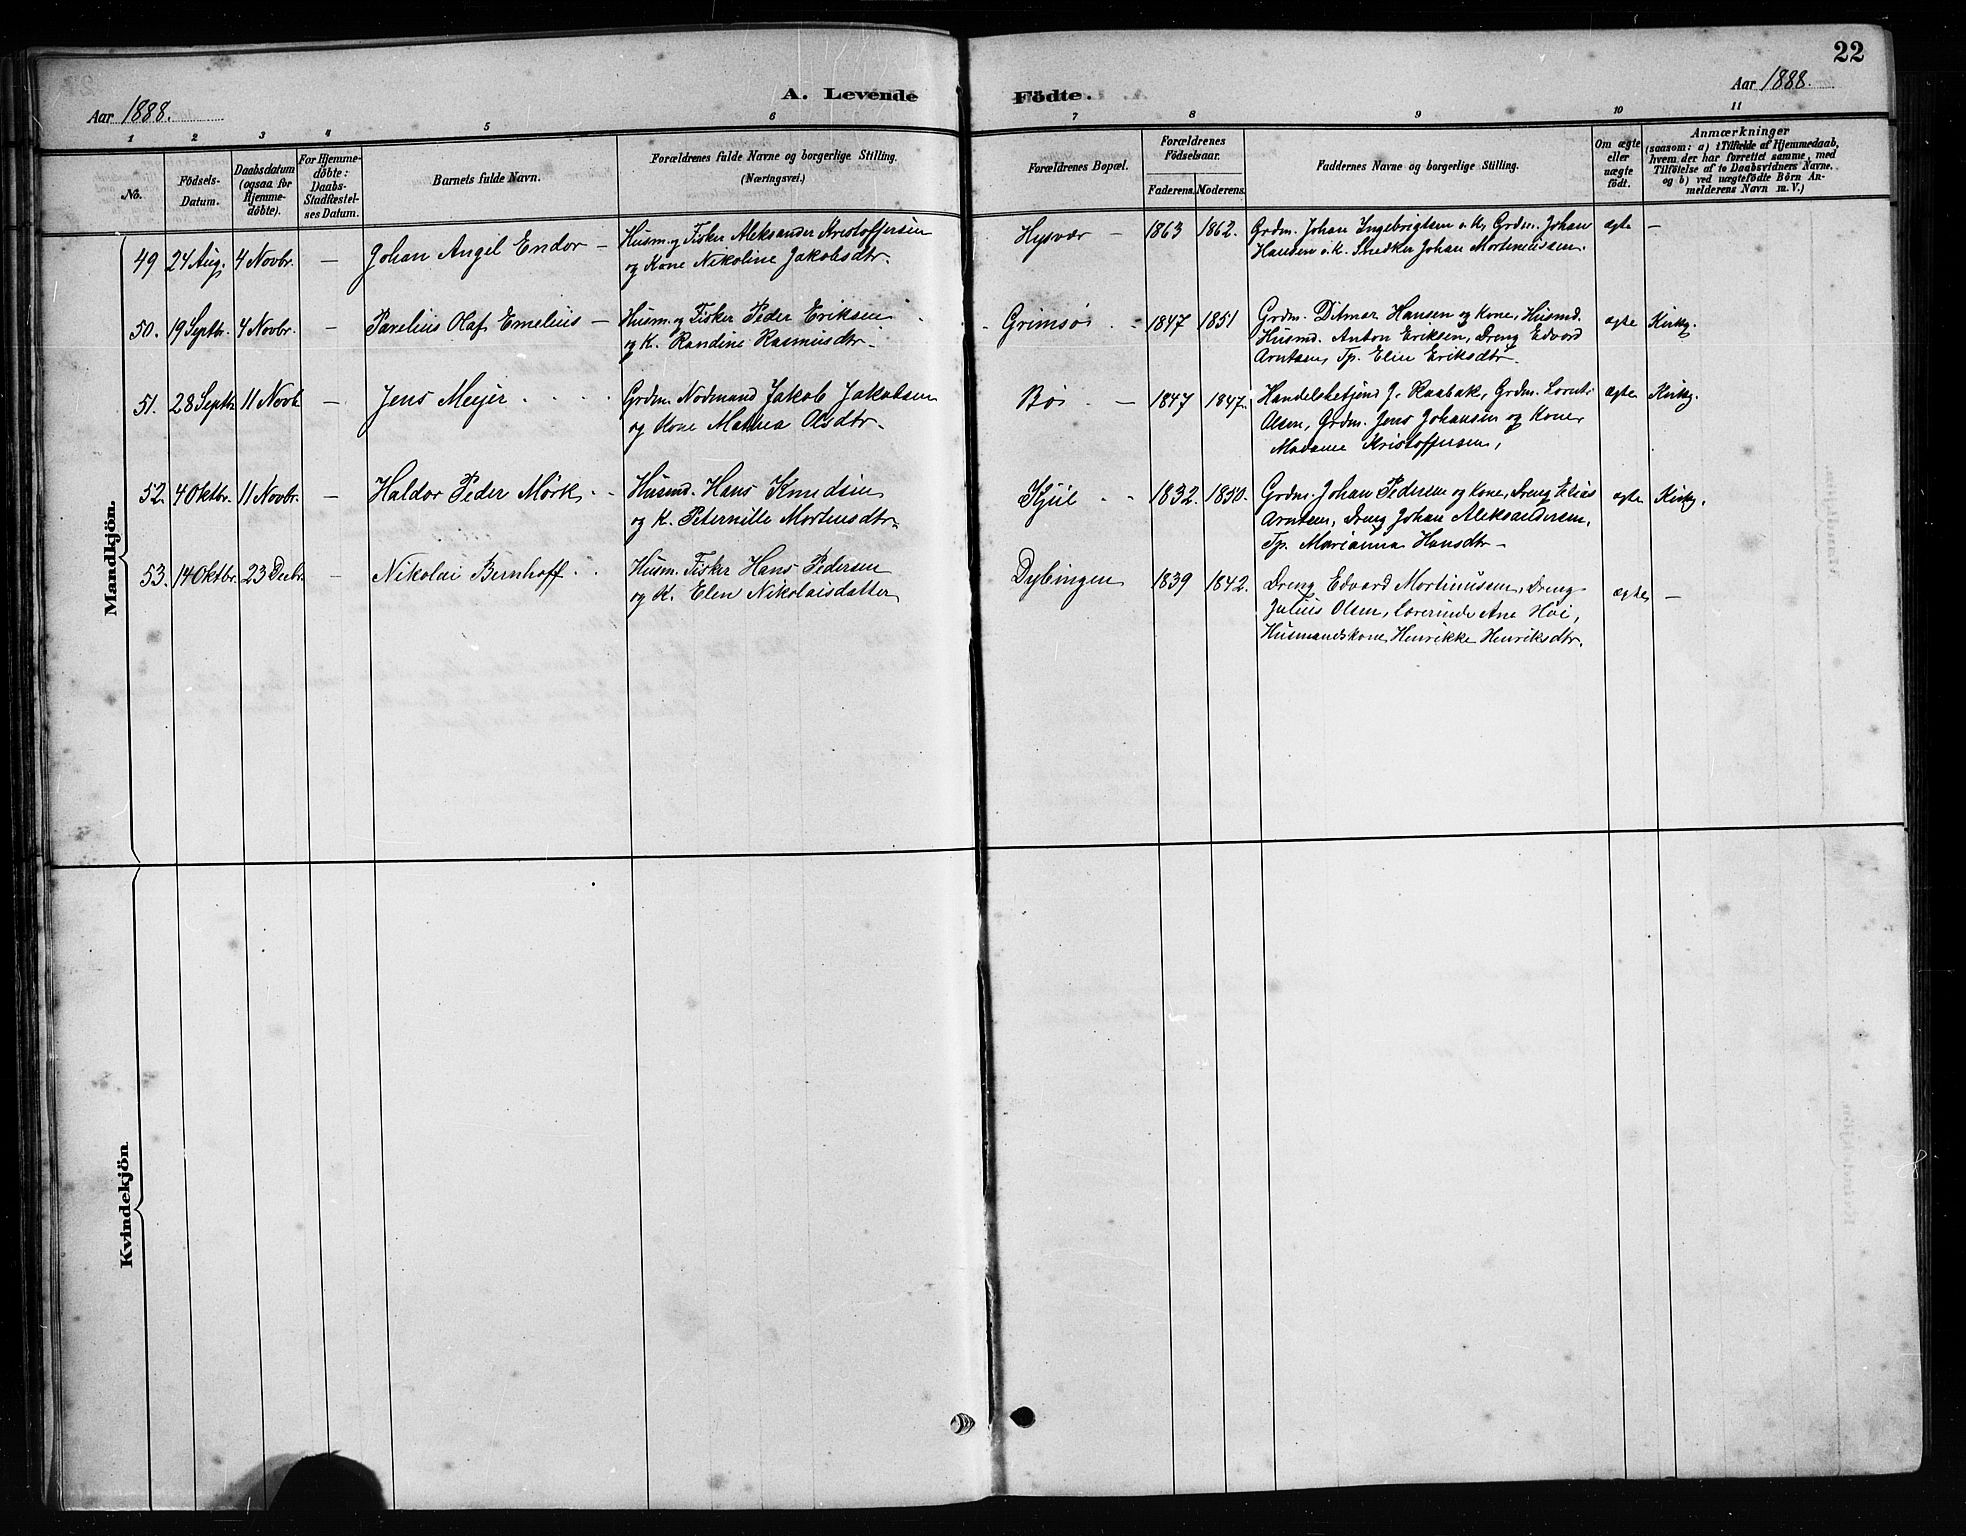 22
Aar 1888.
A. Levende
Födte.
Aar 1888.
1 2 3 4 5 6 7 8 9 10 11
No.
Födsels-
Datum.
Daabsdatum
(ogsaa for
Hjemme-
døbte).
For Hjemme-
døbte:
Daabs-
Stadfæstel-
ses Datum.
Barnets fulde Navn.
Forældrenes fulde Navne og borgerlige Stilling.
(Næringsvei.)
Forældrenes Bopæl.
Forældrenes
Födselsaar.
Faderens. Moderens.
Faddernes Navne og borgerlige Stilling.
Om ægte
eller
uægte
födt.
Anmærkninger
(saasom: a) i Tilfælde af Hjemmedaab,
hvem der har forrettet samme, med
Tilföielse af to Daabsvidners Navne.
og b) ved uægtefödte Börn An-
melderens Navn m. V.)
Mandkjön.
49 24 Aug. 4 Novbr. — Johan Angel Endor —
Husm. og Fisker Aleksander Kristoffersen
og Kone Nikoline Jakobsdtr.
Hysvær — 1863 1862.
Grdm. Johan Ingebrigtsen o. K., Grdm. Johan
Hansen o. K. Snedker Johan Mortinussen.
ægte —
50. 19 Septbr. 4 Novbr. — Parelius Olaf Emelius —
Husm. og Fisker Peder Eriksen
og K. Randine Rasmusdtr.
Grimsø 1847 1851
Grdm. Ditmar Hansen og Kone, Husmd.
Husmd. Anton Eriksen, Dreng Edvard
Arntsen, Tp. Elen Eriksdtr.
ægte Kirkg.
51. 28 Septbr. 11 Novb. — Jens Meyer
Grdm. Nodmand Jakob Jakobsen
og Kone Mathea Olsdtr.
Bø — 1847 1847.
Handelsbetjend J. Raabak, Grdm. Lornts
Olsen, Grdm. Jens Johansen og Kone,
Madame Kristoffersen,
ægte Kirkg.
52. 4 Oktbr. 11 Novbr. — Haldor Peder Mørk
Husmd. Hans Knudsen
og K. Peternille Mortensdtr.
Kjul 1832. 1850.
Grdm. Johan Pedersen og Kone, Dreng Elias
Arntsen, Dreng Johan Aleksandersen,
Tp. Marianna Hansdtr —
ægte Kirkg.
53. 14 Oktbr. 23 Decbr. — Nikolai Bernhoff
Husm. Fisker Hans Pedersen
og K. Elen Nikolaisdatter
Dybingen 1839 1842.
Dreng Edvard Mortinussen, Dreng
Julius Olsen, lærerinde Ane Høi,
Husmandskone Henrikke Henriksdtr.
ægte —
Kvindekjön